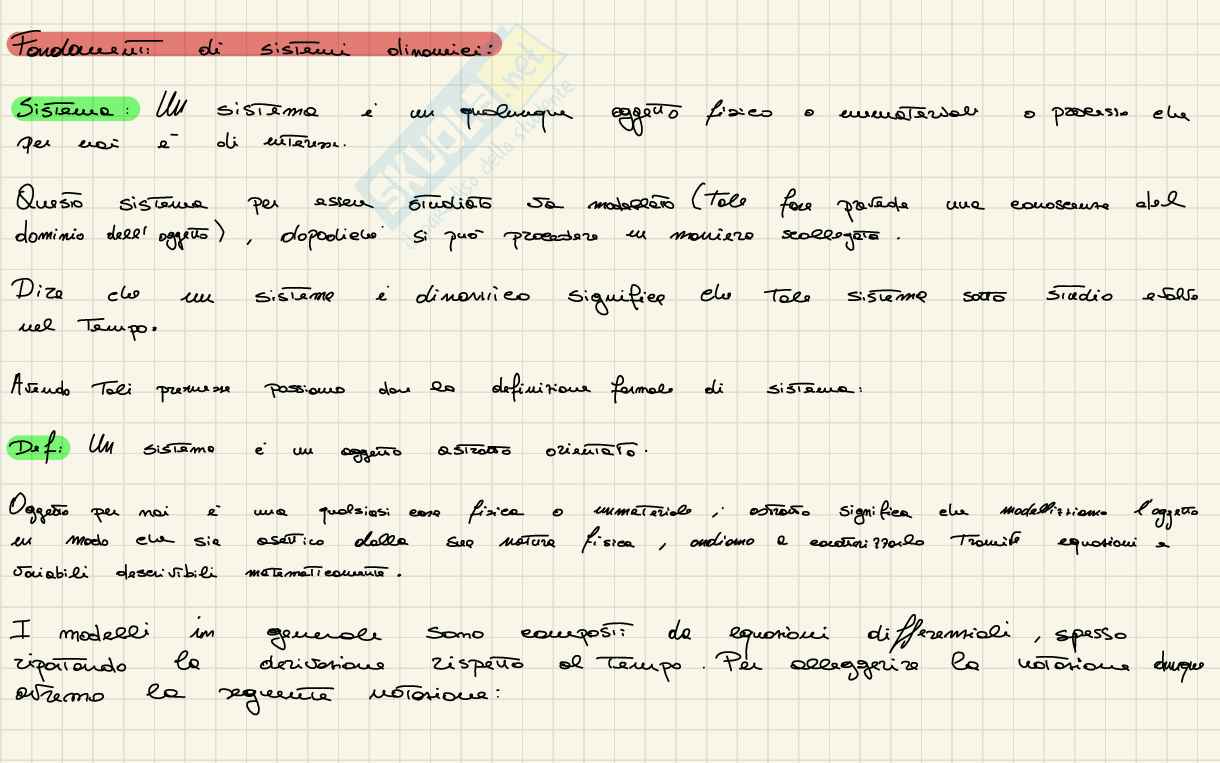 Fondamenti di sistemi dinamici:
Sistema: Un sistema è un qualunque oggetto fisico o immateriale o processo che
per noi è di interesse.
Questo sistema per essere studiato va modellato (Tale fase prevede una conoscenza del
dominio dell'oggetto), dopodiche' si può procedere in maniera scollegata.
Dire che un sistema è dinamico significa che Tale sistema sotto studio evolve
nel Tempo.
Avendo Tali premesse possiamo dare la definizione formale di sistema:
Def: Un sistema è un oggetto astratto orientato.
Oggetto per noi è una qualsiasi cosa fisica o immateriale; astratto significa che modellizziamo l'oggetto
in modo che sia asettico dalla sua natura fisica, andiamo a caratterizzarlo Tramite equazioni e
variabili descrivibili matematicamente.
I modelli in generale sono composti da equazioni differenziali, spesso
riportando la derivazione rispetto al Tempo. Per alleggerire la notazione dunque
avremo la seguente notazione:
SKUOLA.net